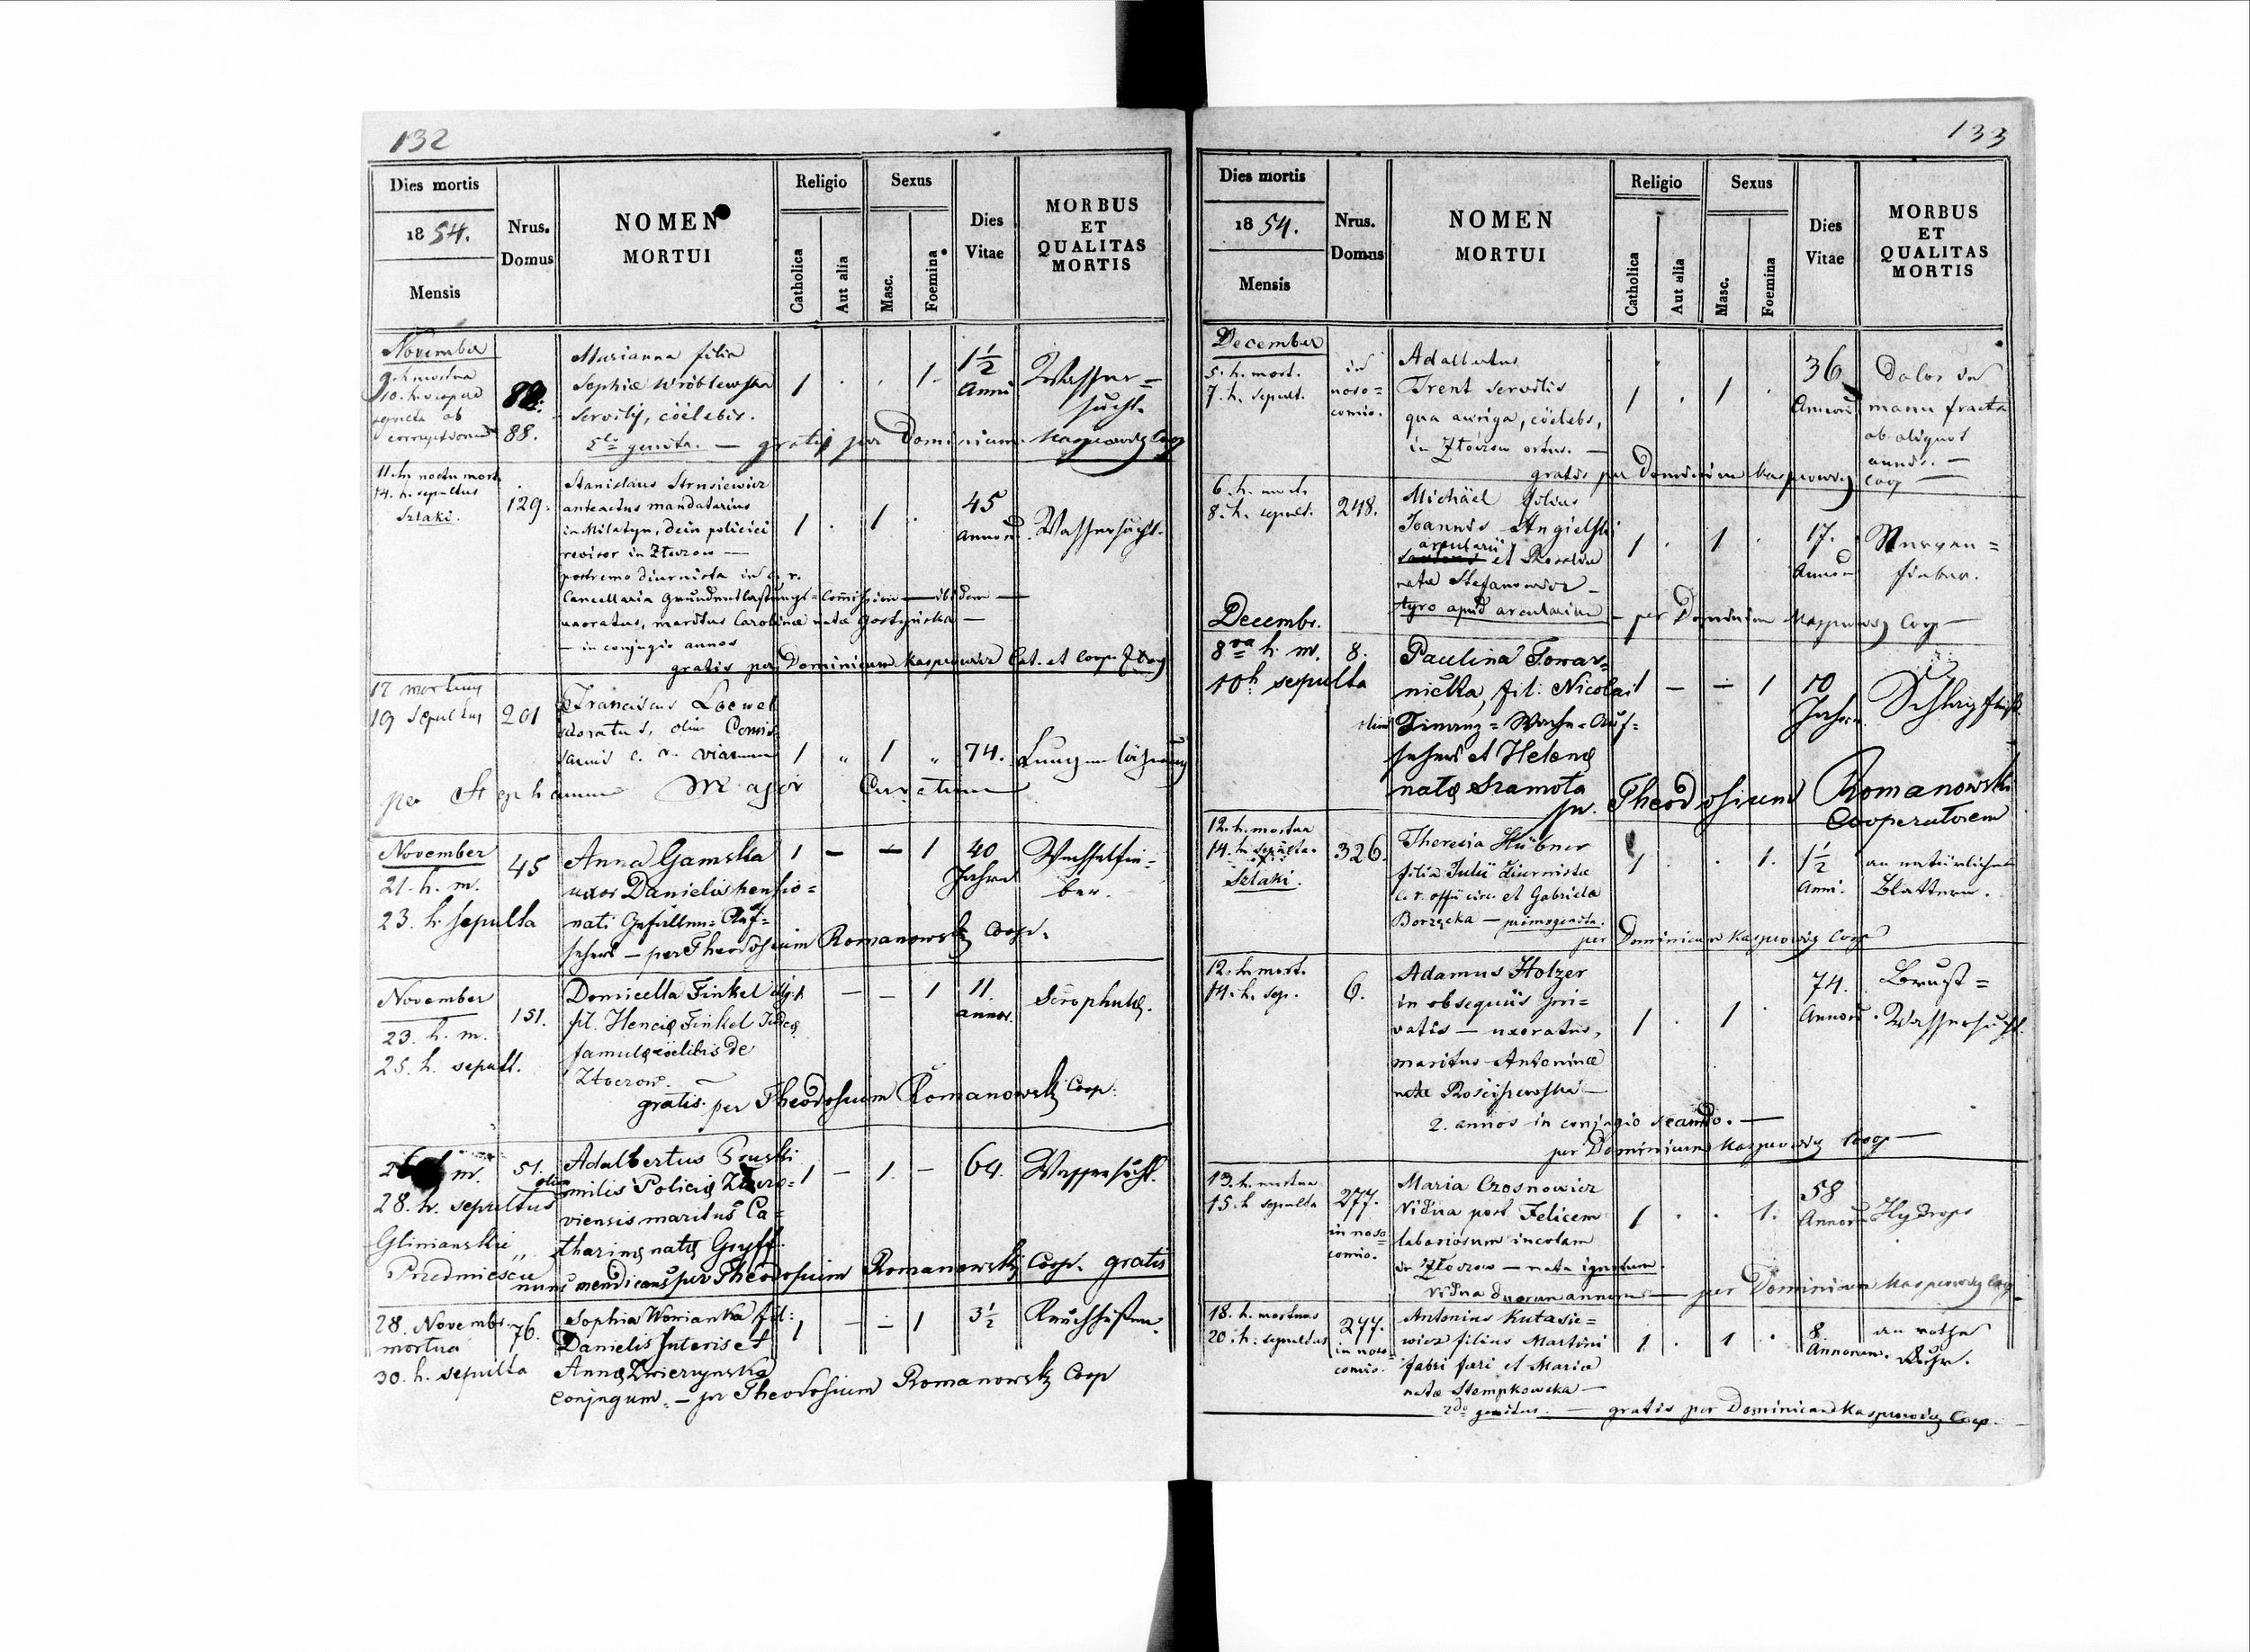 132
Dies mortis
1854.
Mensis
Nrus.
Domus
NOMEN
MORTUI
Religio
Catholica
Aut alia
Sexus
Masc.
Foemina
Dies
Vitae
MORBUS
ET
QUALITAS
MORTIS
November
9. h. mortua
10. h.
sepulta ob
corruptionem
88.
Marianna filia
Sophiæ Wróblewska
servilis, cöelebis.
genita. — gratis per Dominicum Kasprowicz Coop
1 . . 1.
1½
Anni
Wasser=
sucht.
11. h. noctu mort.
14. h. sepultus
Szlaki.
129.
Stanislaus Strusiewicz
anteactus mandatarius
in Milatyn, dein policiei
revisor in Złoczow —
postremo diurnista in c. r.
Cancellaria Grundentlastungs=Commission — ibidem —
uxoratus, maritus Carolinæ natæ Gostyńska —
— in conjugio annos
gratis per Dominicum Kasprowicz Cat. et Coop.
1 . 1 .
45
Annorum
Wassersucht.
17 mortuus
19 sepultus
201
Franciscus Loewel
uxoratus, olim Comis
sarius c. r. viarum
1 " 1 " 74. Lungenlähmung
per Stephanum Major Curatum
November
21. h. m.
23. h. sepulta
45
Anna Gamska
uxor Danielis pensio=
nati Gefällen=Auf=
sehers — per Theodosium Romanowski Coop.
1 — — 1
40
Jahre
Wechselfie=
ber.
November
23. h. m.
25. h. sepult.
151.
Domicella Finkel illg.
fil. Hencię Finkel Judeę
famulę cöelibis de
Złoczow. —
gratis. per Theodosium Romanowski Coop.
1 — — 1
11.
annor.
Scrophulę.
26 h. m.
28. h. sepultus
Glinianskie
Przedmiescie
51.
Adalbertus Pruski
olim milis Policię Złoczo=
viensis maritus Ca=
tharinę natę Gryff.
nunc mendicans per Theodosium Romanowski Coop. gratis
1 — 1. — 64. Wassersucht.
28. Novembr.
mortua
30. h. sepulta
76.
Sophia Woznianka fil:
Danielis Juteris et
Annę Zwierzynska
conjugum. — pr Theodosium Romanowski Coop
1 — — 1 3½ Keuchhusten.
133
Dies mortis
1854.
Mensis
Nrus.
Domus
NOMEN
MORTUI
Religio
Catholica
Aut alia
Sexus
Masc.
Foemina
Dies
Vitae
MORBUS
ET
QUALITAS
MORTIS
December
5. h. mort.
7. h. sepult.
in
noso=
comio.
Adalbertus
Trent servilis
qua auriga, cöelebs,
in Złoczow ortus. —
gratis per Dominicum Kasprowicz Coop —
1 . 1 .
36
Annorum
Dolor in
manu fracta
ab aliquot
annis. —
6. h. mort.
8. h. sepult.
248.
Michäel filius
Joannis Angielski
arcularii
et Rosalia
natæ Stefanowicz —
tyro apud arcularium — per Dominicum Kasprowicz Coop —
1 . 1 .
17.
Annor
Nerven=
fieber.
Decembr.
8va h. m.
10 h sepulta
8.
Paulina Towar=
nicka, fil: Nicolai
olim Finanz=Wache=Auf=
sehers et Helenę
natę Szamota
pr. Theodosium Romanowski
Cooperatorem
1 — — 1
10
Jahre
Schlagfluß.
12. h. mortua
14. h. sepulta.
Szlaki.
326.
Theresia Hübner
filia Julii diurnistæ
c. r. offii circ. et Gabriela
Borzęcka — primogenita.
per Dominicum Kasprowicz Coop
1 . . 1.
1½
Anni.
an natürlichen
Blattern.
12. h. mort.
14. h. sep.
6.
Adamus Holzer
in obsequiis pri=
vatis — uxoratus,
maritus Antoninæ
natæ Rościszewska —
2. annos in conjugio secundo. —
per Dominicum Kasprowicz Coop —
1 . 1 .
74.
Annorum.
Brust=
Wassersucht.
13. h. mortua
15. h sepulta
277.
in noso=
comio.
Maria Czosnowicz
vidua post Felicem
laboriosum incolam
de Złoczow — nata ignotum.
vidua duorum annorum — per Dominicum Kasprowicz Coop
1 . . 1.
58
Annorum
Hydrops
18. h. mortuus
20. h. sepultus
277.
in noso=
comio.
Antonius Kutasie=
wicz filius Martini
fabri færi et Mariæ
natæ Stempkowska —
2do genitus. — gratis per Dominicum Kasprowicz Coop.
1 . 1 .
8.
Annorum.
an rother
Ruhr.